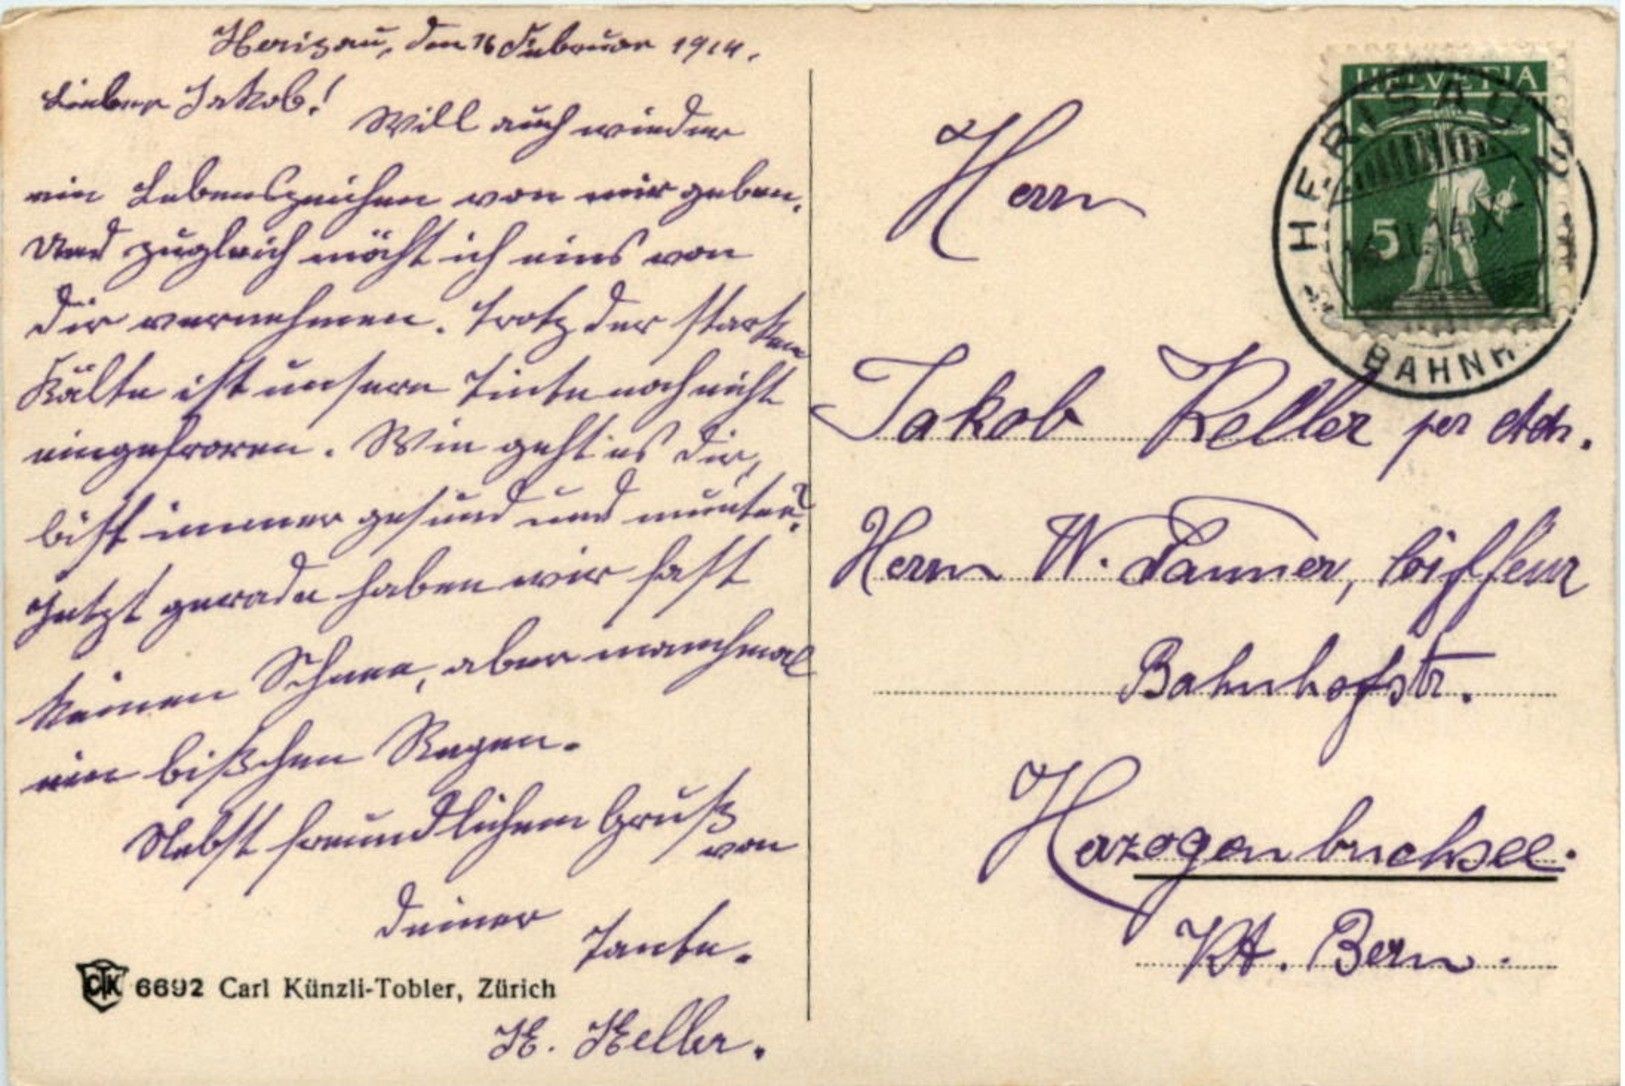 Herisau, den 16 Februar 1914.
Lieber Jakob!
Will auch wieder
ein Lebenszeichen von mir geben.
Und zugleich möcht ich eins von
dir vernehmen. Trotz der starken
Kälte ist unsere Tinte noch nicht
eingefroren. Wie geht es dir,
bist immer gesund und munter?
Jetzt gerade haben wir fast
keinen Schnee, aber manchmal
ein bißchen Regen.
Nebst freundlichem Gruß
von
deiner
Tante.
H. Keller.
CTK 6692 Carl Künzli-Tobler, Zürich
HELVETIA
5
HERISAU
BAHNH
Herrn
Jakob Keller per Adr.
Herrn W. Tanner, Coiffeur
Bahnhofstr.
Herzogenbuchsee.
Kt. Bern.